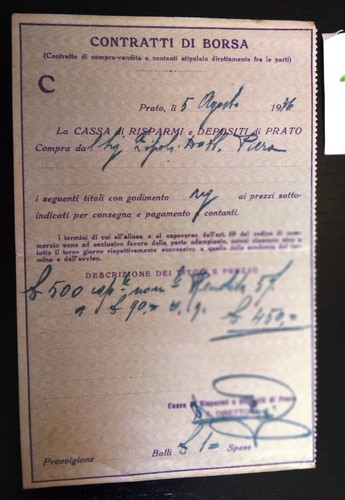 CONTRATTI DI BORSA
(Contratto di compra-vendita a contanti stipulato direttamente fra le parti)
C
Prato, li 5 Agosto 1936
La CASSA di RISPARMI e DEPOSITI di PRATO
Compra dal Sig. Zipoli Dott. Piero
i seguenti titoli con godimento rg ai prezzi sotto-
indicati per consegna e pagamento contanti.
I termini di cui all'alinea e al capoverso dell'art. 69 del codice di com-
mercio sono ad esclusivo favore della parte adempiente,
tutto il terzo giorno rispettivamente successivo a quello della scadenza del ter-
mine e dell'avviso.
DESCRIZIONE DEI TITOLI E PREZZO
£ 500 cap.le nom.le Rendita 5%
a £ 90,= £ 450,=
Cassa di Risparmi e Depositi di Prato
IL DIRETTORE
Provvigione Bolli £ 1= Spese